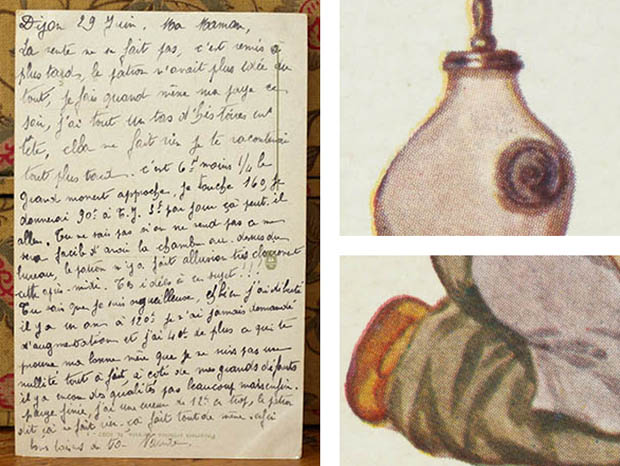 Dijon 29 Juin. Ma Maman,
La vente ne se fait pas, c'est remis à
plus tard, le patron n'avait plus idée du
tout, je fais quand même ma paye ce
soir, j'ai tout un tas d'histoires en
tête, cela ne fait rien je te raconterai
tout plus tard. c'est 6h moins 1/4 le
grand moment approche. Je touche 169 je
donnerai 90 à T. J. par jour ça peut il
aller. Tu ne sais pas si on ne vend pas ça me
sera facile d'avoir la chambre au-dessus du
bureau, le patron m'y a fait allusion très clairement
cette après-midi. Tes idées à ce sujet!!!
Tu sais que je suis orgueilleuse. Eh bien j'ai débuté
il y a un an à 120f je n'ai jamais demandé
d'augmentation et j'ai 40f de plus ce qui te
prouve ma bonne mère que je ne suis pas une
nullité tout à fait à côté de mes grands défauts
il y a encore des qualités pas beaucoup mais enfin.
paye finie, j'ai une erreur de 12f en trop, le patron
dit ça ne fait rien. ça fait tout de même
bons baisers de